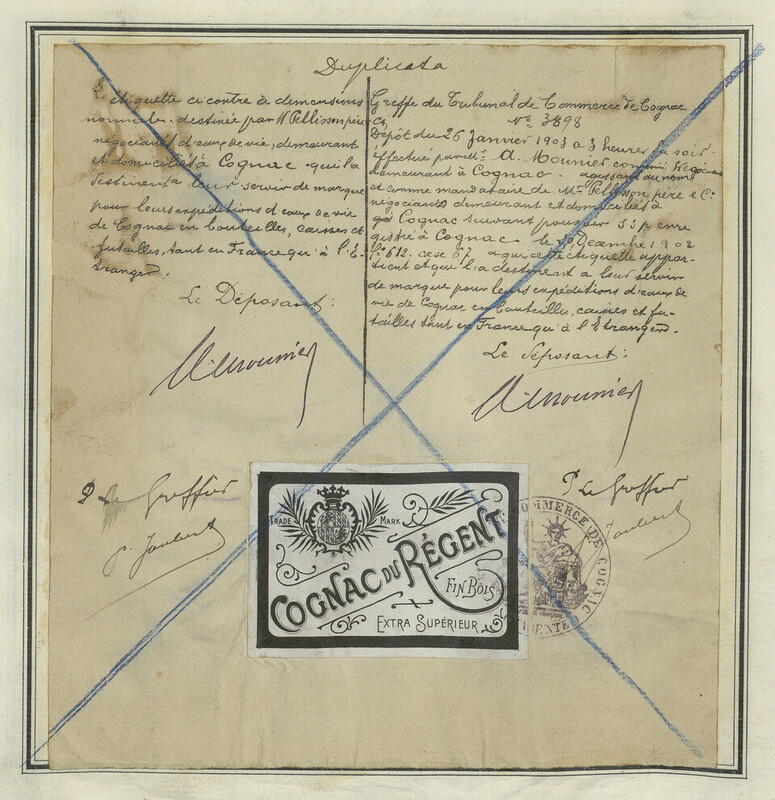 Duplicata
L'étiquette ci contre à dimensions
normales destinée par M Pellisson père
négociants d'eaux de vie, demeurant
et domiciliés à Cognac qu'il a
destinent a leur servir de marque
pour leurs expéditions d'eaux de vie
de Cognac en bouteilles, caisses et
futailles, tant en France qu'à l'E-
tranger.
Le Déposant:
A. Mounier
P Le Greffier
P. Joubert
Greffe du Tribunal de Commerce de Cognac
N° 3898
Dépôt du 26 Janvier 1903 à 3 heures du soir
effectué par M. A. Mounier commis Négociant
demeurant à Cognac - agissant au nom
et comme mandataire de Mrs Pellisson père & Cie
négociants demeurant et domiciliés à
Cognac suivant pouvoir SSP enre
gistré à Cognac le 20 Décembre 1902
F° 612. case 67 que cette étiquette appar-
tient et qu'il a destinent a leur servir
de marque pour leurs expéditions d'eaux de
vie de Cognac en bouteilles, caisses et fu-
tailles tant en France qu'à l'Etranger.
Le Déposant:
A. Mounier
P Le Greffier
Joubert
TRADE MARK
COGNAC DU RÉGENT
FIN BOIS
EXTRA SUPÉRIEUR
COMMERCE DE COGNAC